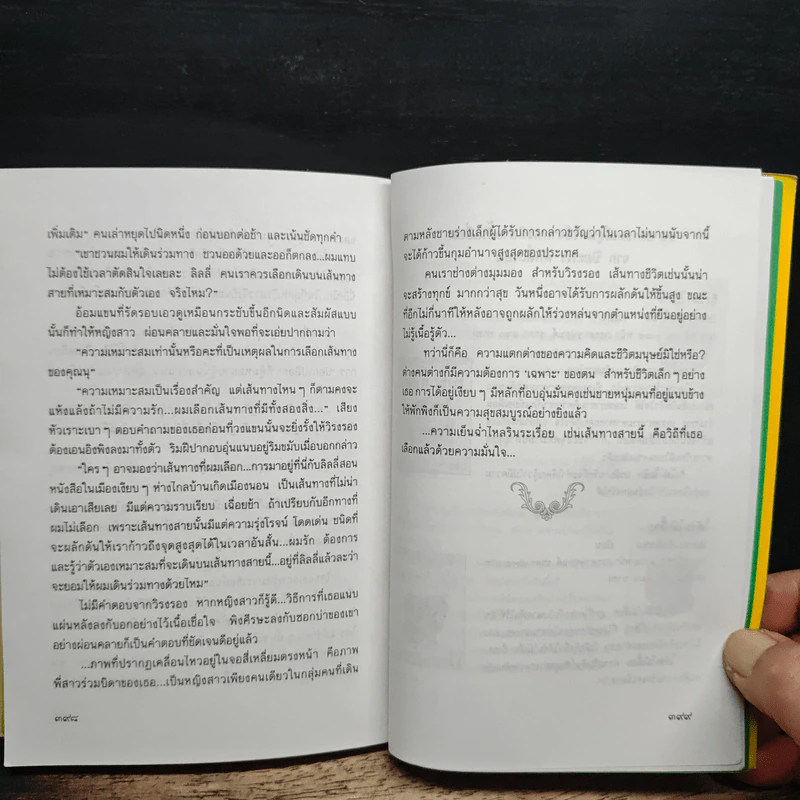 เพิ่มเติม" คนเล่าหยุดไปนิดหนึ่ง ก่อนบอกต่อช้า และเน้นชัดทุกคำ
"เขาชวนผมให้เดินร่วมทาง ชวนออด้วยและออก็ตกลง...ผมแทบ
ไม่ต้องใช้เวลาตัดสินใจเลยละ ลิลลี่ คนเราควรเลือกเดินบนเส้นทาง
สายที่เหมาะสมกับตัวเอง จริงไหม?"
อ้อมแขนที่รัดรอบเอวดูเหมือนกระชับขึ้นอีกนิดและสัมผัสแบบ
นั้นก็ทำให้หญิงสาว ผ่อนคลายและมั่นใจพอที่จะเอ่ยปากถามว่า
"ความเหมาะสมเท่านั้นหรือคะที่เป็นเหตุผลในการเลือกเส้นทาง
ของคุณนุ"
"ความเหมาะสมเป็นเรื่องสำคัญ แต่เส้นทางไหนๆ ก็ตามคงจะ
แห้งแล้งถ้าไม่มีความรัก...ผมเลือกเส้นทางที่มีทั้งสองสิ่ง..." เสียง
หัวเราะเบาๆ ตอบคำถามของเธอก่อนที่วงแขนนั้นจะยิ่งรั้งให้วิรงรอง
ต้องเอนอิงพิงลงมาทั้งตัว ริมฝีปากอบอุ่นแนบอยู่ริมขมับเมื่อบอกกล่าว
"ใครๆ อาจมองว่าเส้นทางที่ผมเลือก...การมาอยู่ที่นี่กับลิลลี่สอน
หนังสือในเมืองเงียบๆ ห่างไกลบ้านเกิดเมืองนอน เป็นเส้นทางที่ไม่น่า
เดินเอาเสียเลย มีแต่ความราบเรียบ เฉื่อยช้า ถ้าเปรียบกับอีกทางที่
ผมไม่เลือก เพราะเส้นทางสายนั้นมีแต่ความรุ่งโรจน์ โดดเด่น ชนิดที่
จะผลักดันให้เราก้าวถึงจุดสูงสุดได้ในเวลาอันสั้น...ผมรัก ต้องการ
และรู้ว่าตัวเองเหมาะสมที่จะเดินบนเส้นทางสายนี้...อยู่ที่ลิลลี่แล้วละว่า
จะยอมให้ผมเดินร่วมทางด้วยไหม"
ไม่มีคำตอบจากวิรงรอง หากหญิงสาวก็รู้ดี...วิธีการที่เธอแนบ
แผ่นหลังลงกับอกอย่างไว้เนื้อเชื่อใจ พิงศีรษะลงกับซอกบ่าของเขา
อย่างผ่อนคลายก็เป็นคำตอบที่ชัดเจนดีอยู่แล้ว
...ภาพที่ปรากฏเคลื่อนไหวอยู่ในจอสี่เหลี่ยมตรงหน้า คือภาพ
พี่สาวร่วมบิดาของเธอ...เป็นหญิงสาวเพียงคนเดียวในกลุ่มคนที่เดิน
๓๙๘
ตามหลังชายร่างเล็กผู้ได้รับการกล่าวขวัญว่าในเวลาไม่นานนับจากนี้
จะได้ก้าวขึ้นกุมอำนาจสูงสุดของประเทศ
คนเราช่างต่างมุมมอง สำหรับวิรงรอง เส้นทางชีวิตเช่นนั้นน่า
จะสร้างทุกข์ มากกว่าสุข วันหนึ่งอาจได้รับการผลักดันให้ขึ้นสูง ขณะ
ที่อีกไม่กี่นาทีให้หลังอาจถูกผลักให้ร่วงหล่นจากตำแหน่งที่ยืนอยู่อย่าง
ไม่รู้เนื้อรู้ตัว...
ทว่านี่ก็คือ ความแตกต่างของความคิดและชีวิตมนุษย์มิใช่หรือ?
ต่างคนต่างก็มีความต้องการ 'เฉพาะ' ของตน สำหรับชีวิตเล็กๆ อย่าง
เธอ การได้อยู่เงียบๆ มีหลักที่อบอุ่นมั่นคงเช่นชายหนุ่มคนที่อยู่แนบข้าง
ให้พักพิงก็เป็นความสุขสมบูรณ์อย่างยิ่งแล้ว
...ความเย็นฉ่ำไหลรินระเรื่อย เช่นเส้นทางสายนี้ คือวิถีที่เธอ
เลือกแล้วด้วยความมั่นใจ...
๓๙๙